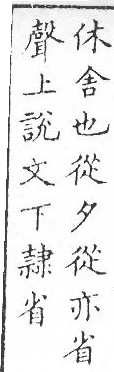 休舍也從夕從亦省
聲上說文下隸省